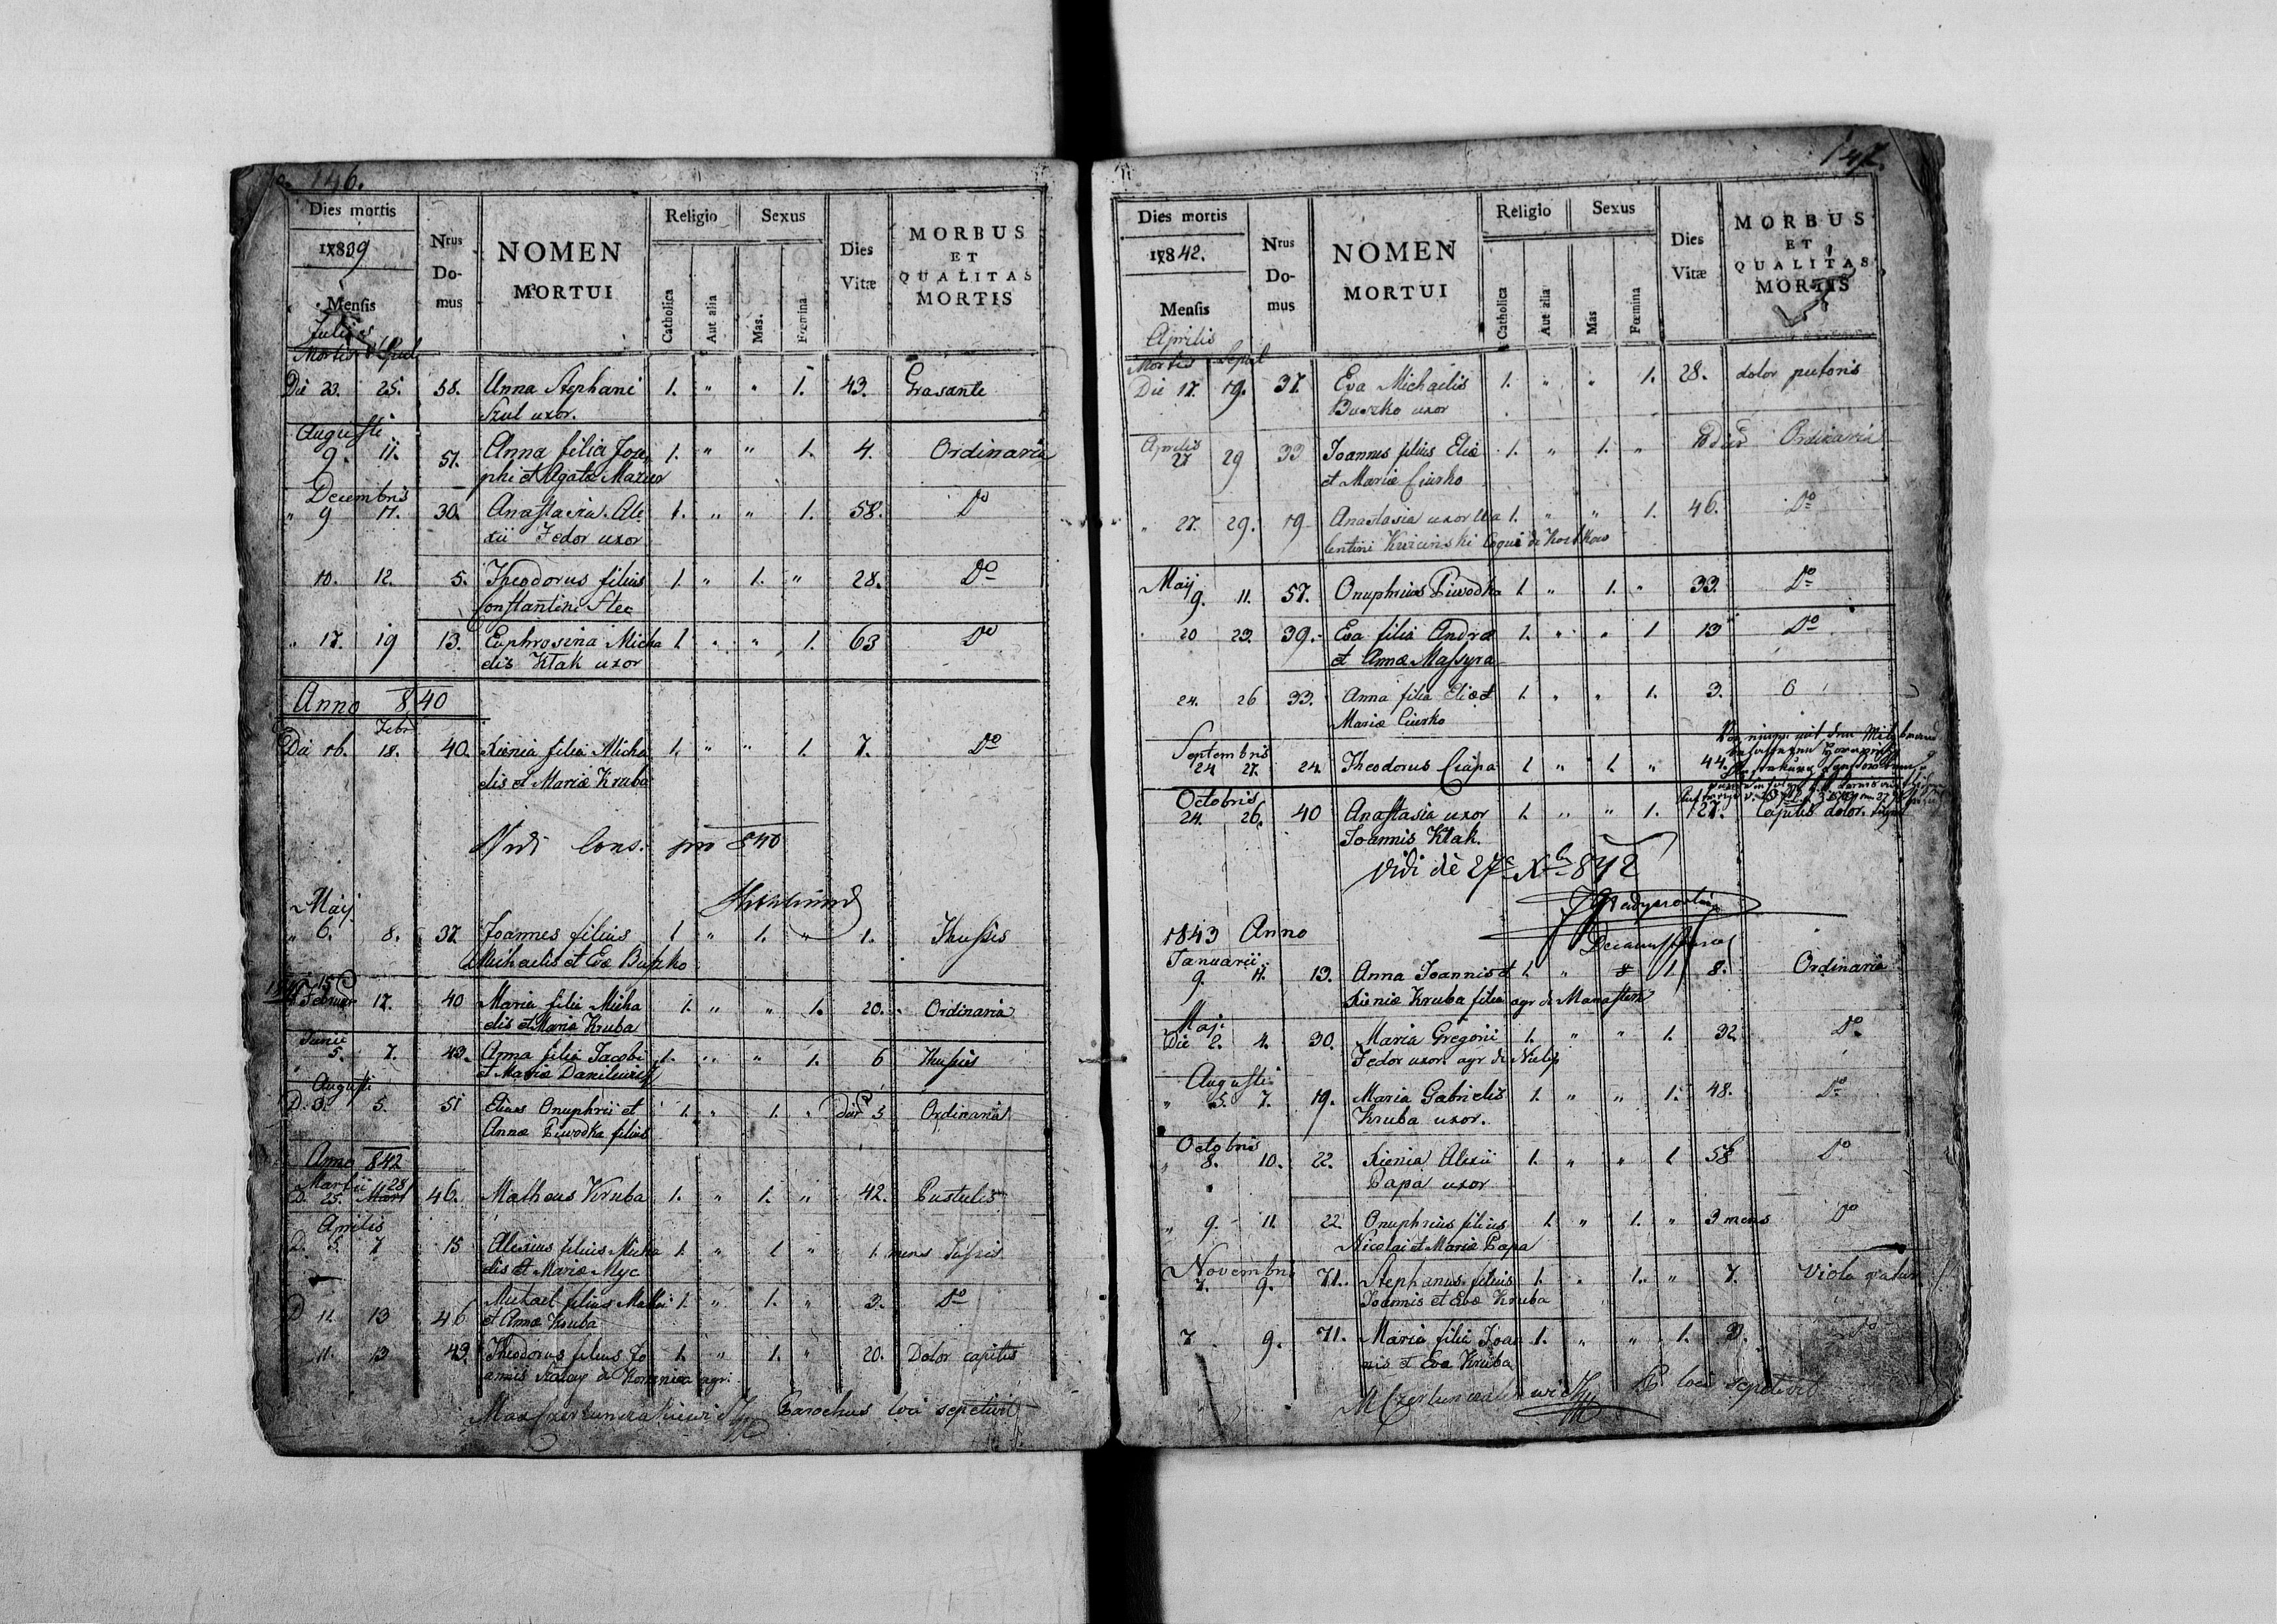 146.
Dies mortis
1839
Mensis
Nrus Domus
NOMEN MORTUI
Religio
Catholica
Aut alia
Sexus
Mas.
Fœmina
Dies Vitæ
MORBUS ET QUALITAS MORTIS
Julius
Mortis Sepul
Die 23. 25. 58. Anna Stephani 1. " " 1. 43. Grasante
Szul uxor.
Augusti
9. 11. 51. Anna filia Jose 1. " " 1. 4. Ordinaria
phi et Agatæ Mazur
Decembris
" 9 17. 30. Anastasia Ale 1. " " 1. 58. Do
xii Fedor uxor
10. 12. 5. Theodorus filius 1 " 1. " 28. Do
Constantini Stec
" 17. 19 13. Euphrosina Micha 1. " " 1. 63 Do
elis Ktak uxor
Anno 840
Febr
Die 16. 18. 40. Xienia filia Micha 1. " " 1. 7. Do
elis et Mariæ Kruba
Vidi Cons. pro 840
Maij
" 6. 8. 37. Joannes filius 1 " 1. " 1. Thussis
Michaelis et Evæ Buszko
15
Februar 17. 40 Maria filia Micha 1. " " 1. 20. Ordinaria
elis et Mariæ Kruba
Junii
5. 7. 43. Anna filia Jacobi 1. " " 1. 6 Thussis
et Mariæ Danilewicz
Augusti
D. 3. 5. 51 Elias Onuphrii et 1. " 1. " dier 5 Ordinaria
Annæ Piwodka filius
Anno 842
Martii 28
D. 25. Mart 46. Matheus Kruba 1. " 1. " 42. Pustulis
Aprilis
D. 5. 7 15 Alexius filius Micha 1. " 1 " 1. mens Tussis
elis et Mariæ Myc
D 11. 13 46 Michael filius Mathei 1. " 1. " 3. Do
et Annæ Kruba
11. 13 43. Theodorus filius Jo 1. " 1. " 20. Dolor capitis
annis agri.
Parochus loci sepelivit
147.
Dies mortis
1842.
Mensis
Nrus Domus
NOMEN MORTUI
Religio
Catholica
Aut alia
Sexus
Mas
Fœmina
Dies Vitæ
MORBUS ET QUALITAS MORTIS
Aprilis
Mortis Sepul
Die 17. 19. 37. Eva Michaelis 1. " " 1. 28. dolor pectoris
Buszko uxor
Aprilis
27 29 33 Joannes filius Eliæ 1. " 1. " Ordinaria
et Mariæ Ciurko
" 27. 29. 19 Anastasia uxor Va 1. " " 1. 46. Do
lentini Kwicinski
Maij
9. 11. 57. Onuphrius Piwodka 1. " 1. " 33. Do
20 23. 39. Eva filia Andræ 1. " " 1 13 Do
et Annæ Massyra
24. 26 33. Anna filia Eliæ et 1. " " 1. 3.
Mariæ Ciurko
Septembris
24 27. 24. Theodorus Ciapa 1. " 1. " 44.
Octobris
24. 26. 40 Anastasia uxor 1. " " 1. 127. Capitis dolor
Joannis Ktak.
Vidi de 27 Xb 842
1843 Anno
Januarii
9. 11. 13. Anna Joannis et 1. " 1 8. Ordinaria
Xieniæ Kruba filia agr de Manasterz
Maj.
Die 2. 4. 30. Maria Gregorii 1. " " 1. 32. Do
Fedor uxor agr de
Augusti
" 5. 7. 19. Maria Gabrielis 1. " " 1. 48. Do
Kruba uxor.
Octobris
" 8. 10. 22. Xienia Alexii 1. " " 1 58 Do
Papa uxor
" 9. 11. 22. Onuphrius filius 1. " 1. " 3 mens Do
Nicolai et Mariæ Papa
Novembris
7. 9. 71. Stephanus filius 1. " 1. " 7. Viola
Joannis et Evæ Kruba
7 9. 71. Maria filia Joan 1. " " 1. 3. Do
nis et Evæ Kruba
P. loci sepelivit